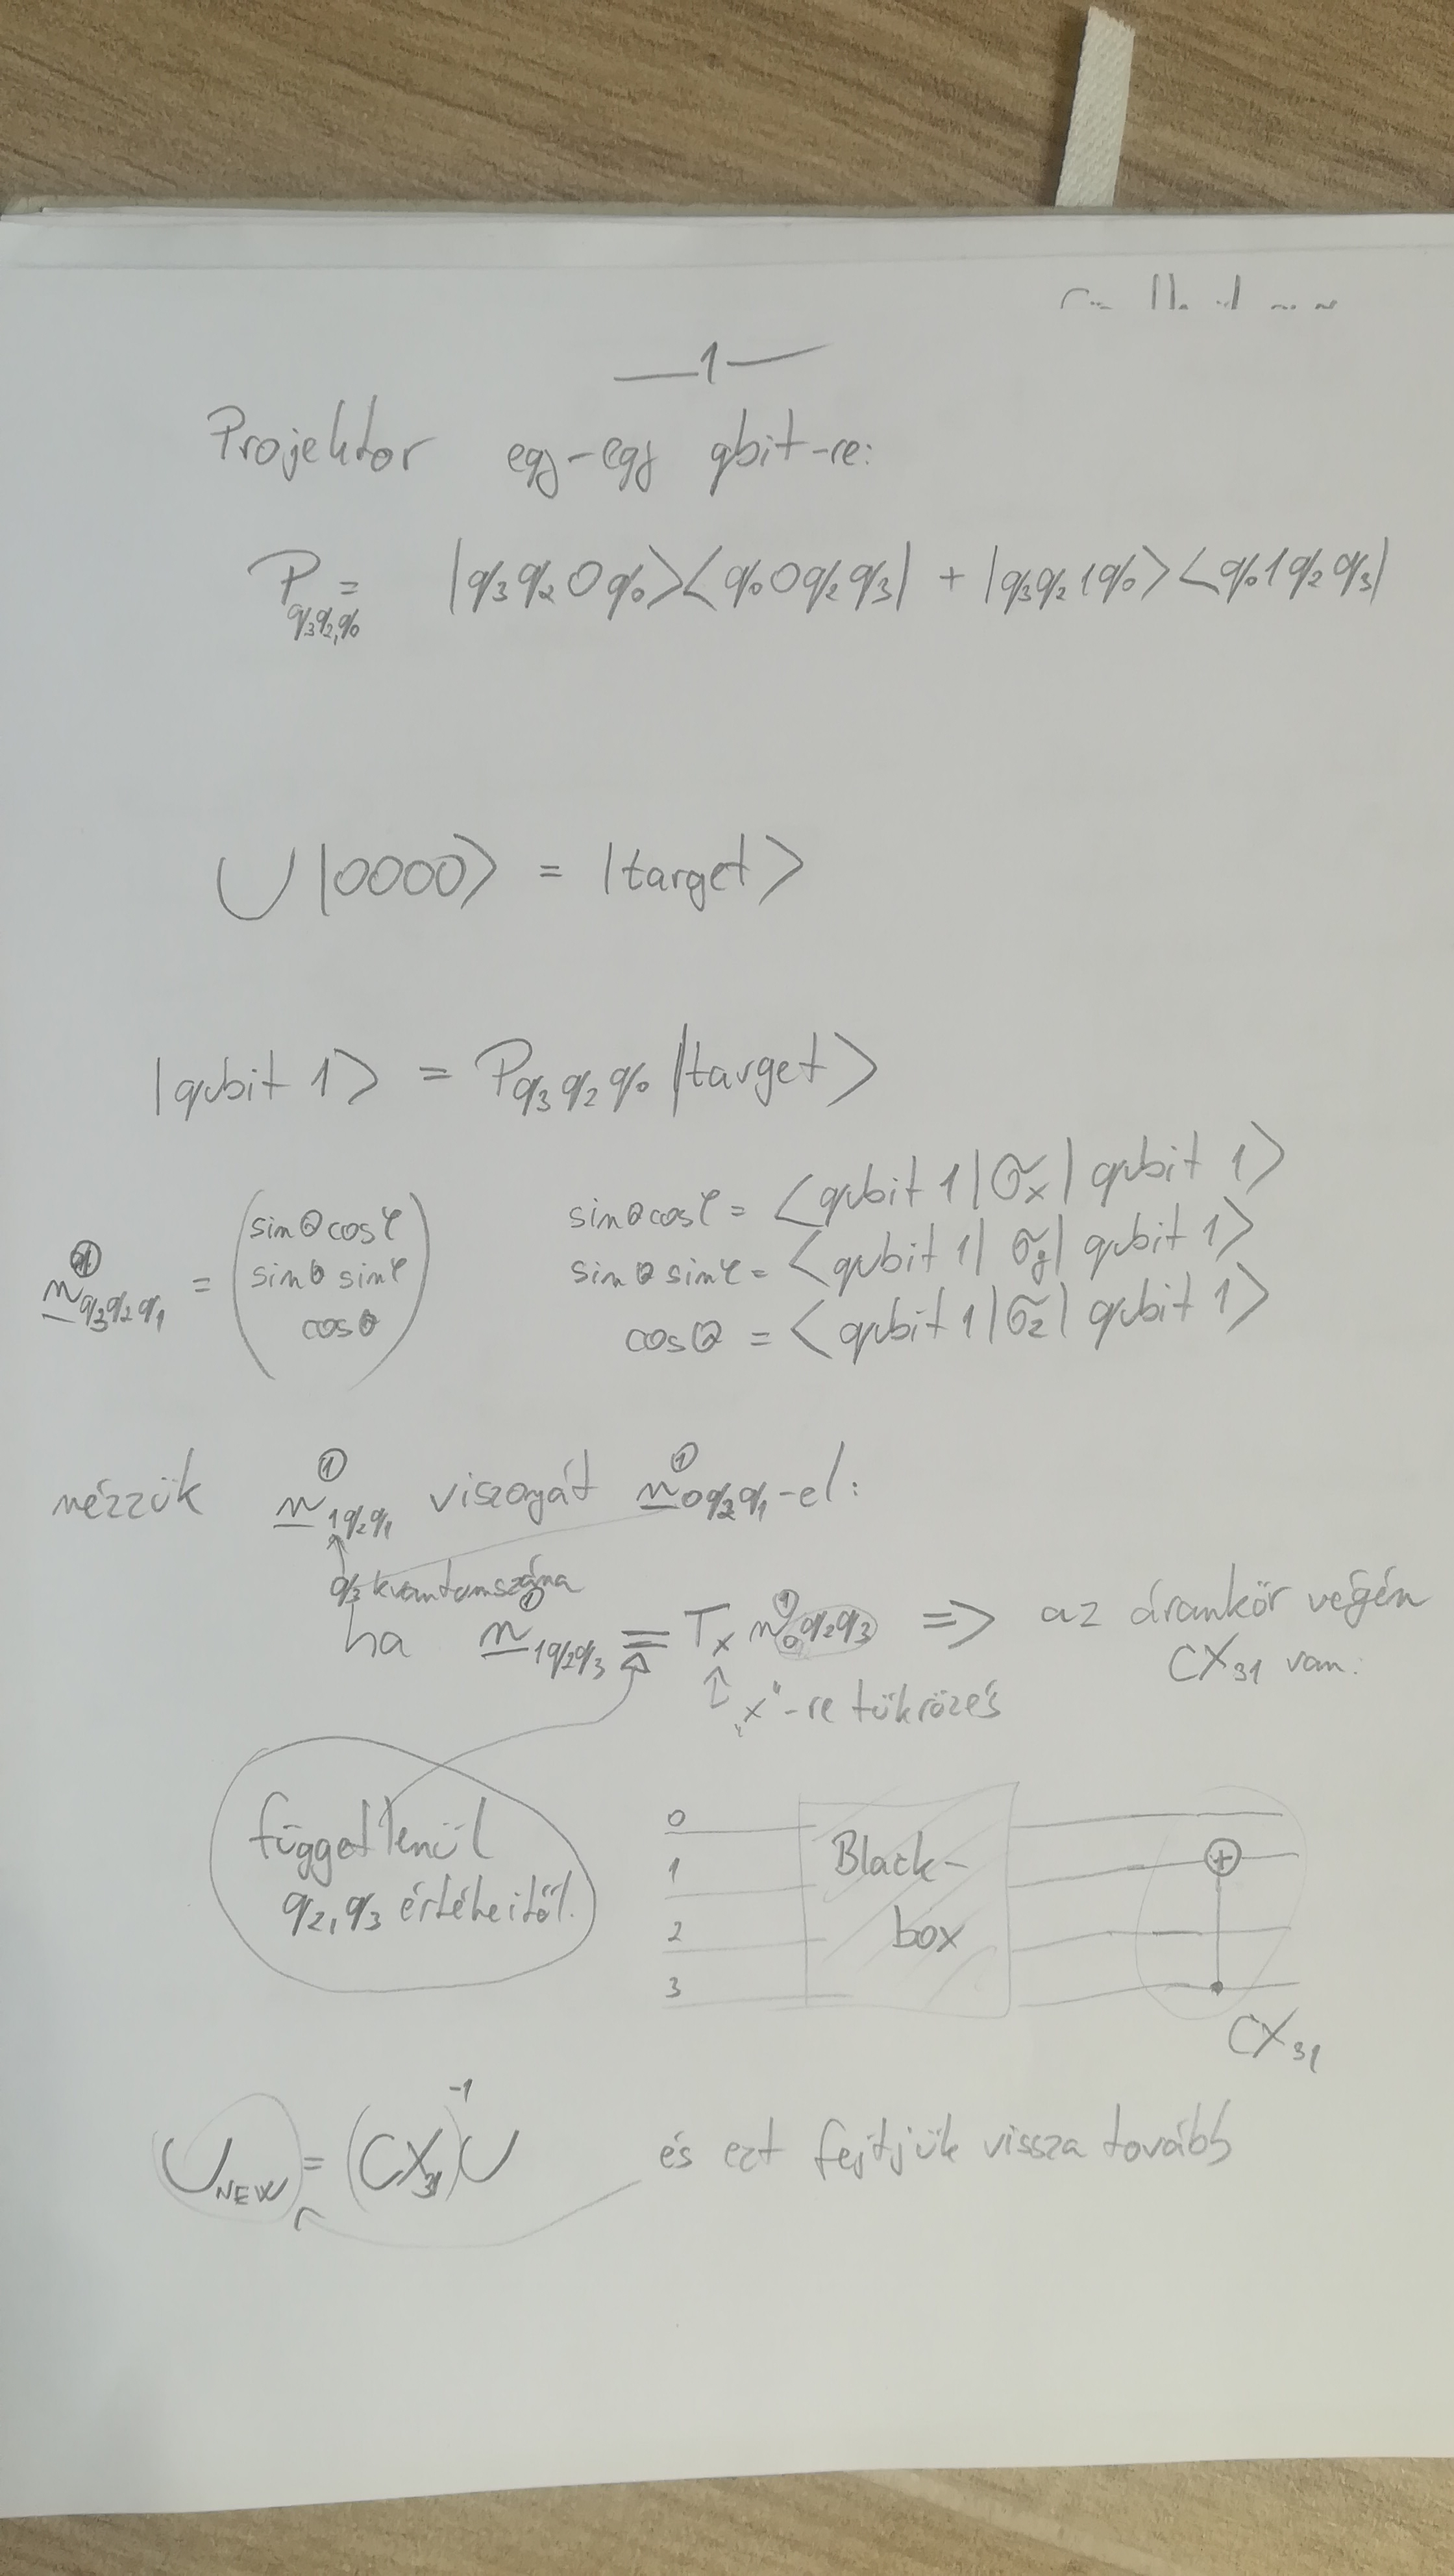 —1—
Projektor egy-egy qbit-re:
P_{q₃q₂,q₀} = |q₃q₂0q₀⟩⟨q₀0q₂q₃| + |q₃q₂1q₀⟩⟨q₀1q₂q₃|
U|0000⟩ = |target⟩
|qubit 1⟩ = P_{q₃q₂q₀}|target⟩
sinθcosφ = ⟨qubit 1|σₓ|qubit 1⟩
n_{q₃q₂q₁} = (sinθcosφ
sinθ sinφ
cosθ)
sinθ sinφ = ⟨qubit 1|σ_y|qubit 1⟩
cosθ = ⟨qubit 1|σ_z|qubit 1⟩
nézzük n^①_{1q₂q₁} viszonyát n^①_{0q₂q₁}-el:
q₃ kvantumszáma
ha n^①_{1q₂q₃} = Tₓ n^①_{0q₂q₃} ⇒ az áramkör végén
CX₃₁ van:
"x"-re tükrözés
függetlenül
q₂,q₃ értékeitől.
0
1
2
3
Black-
box
CX₃₁
U_{NEW} = (CX₃₁)⁻¹U és ezt fejtjük vissza tovább